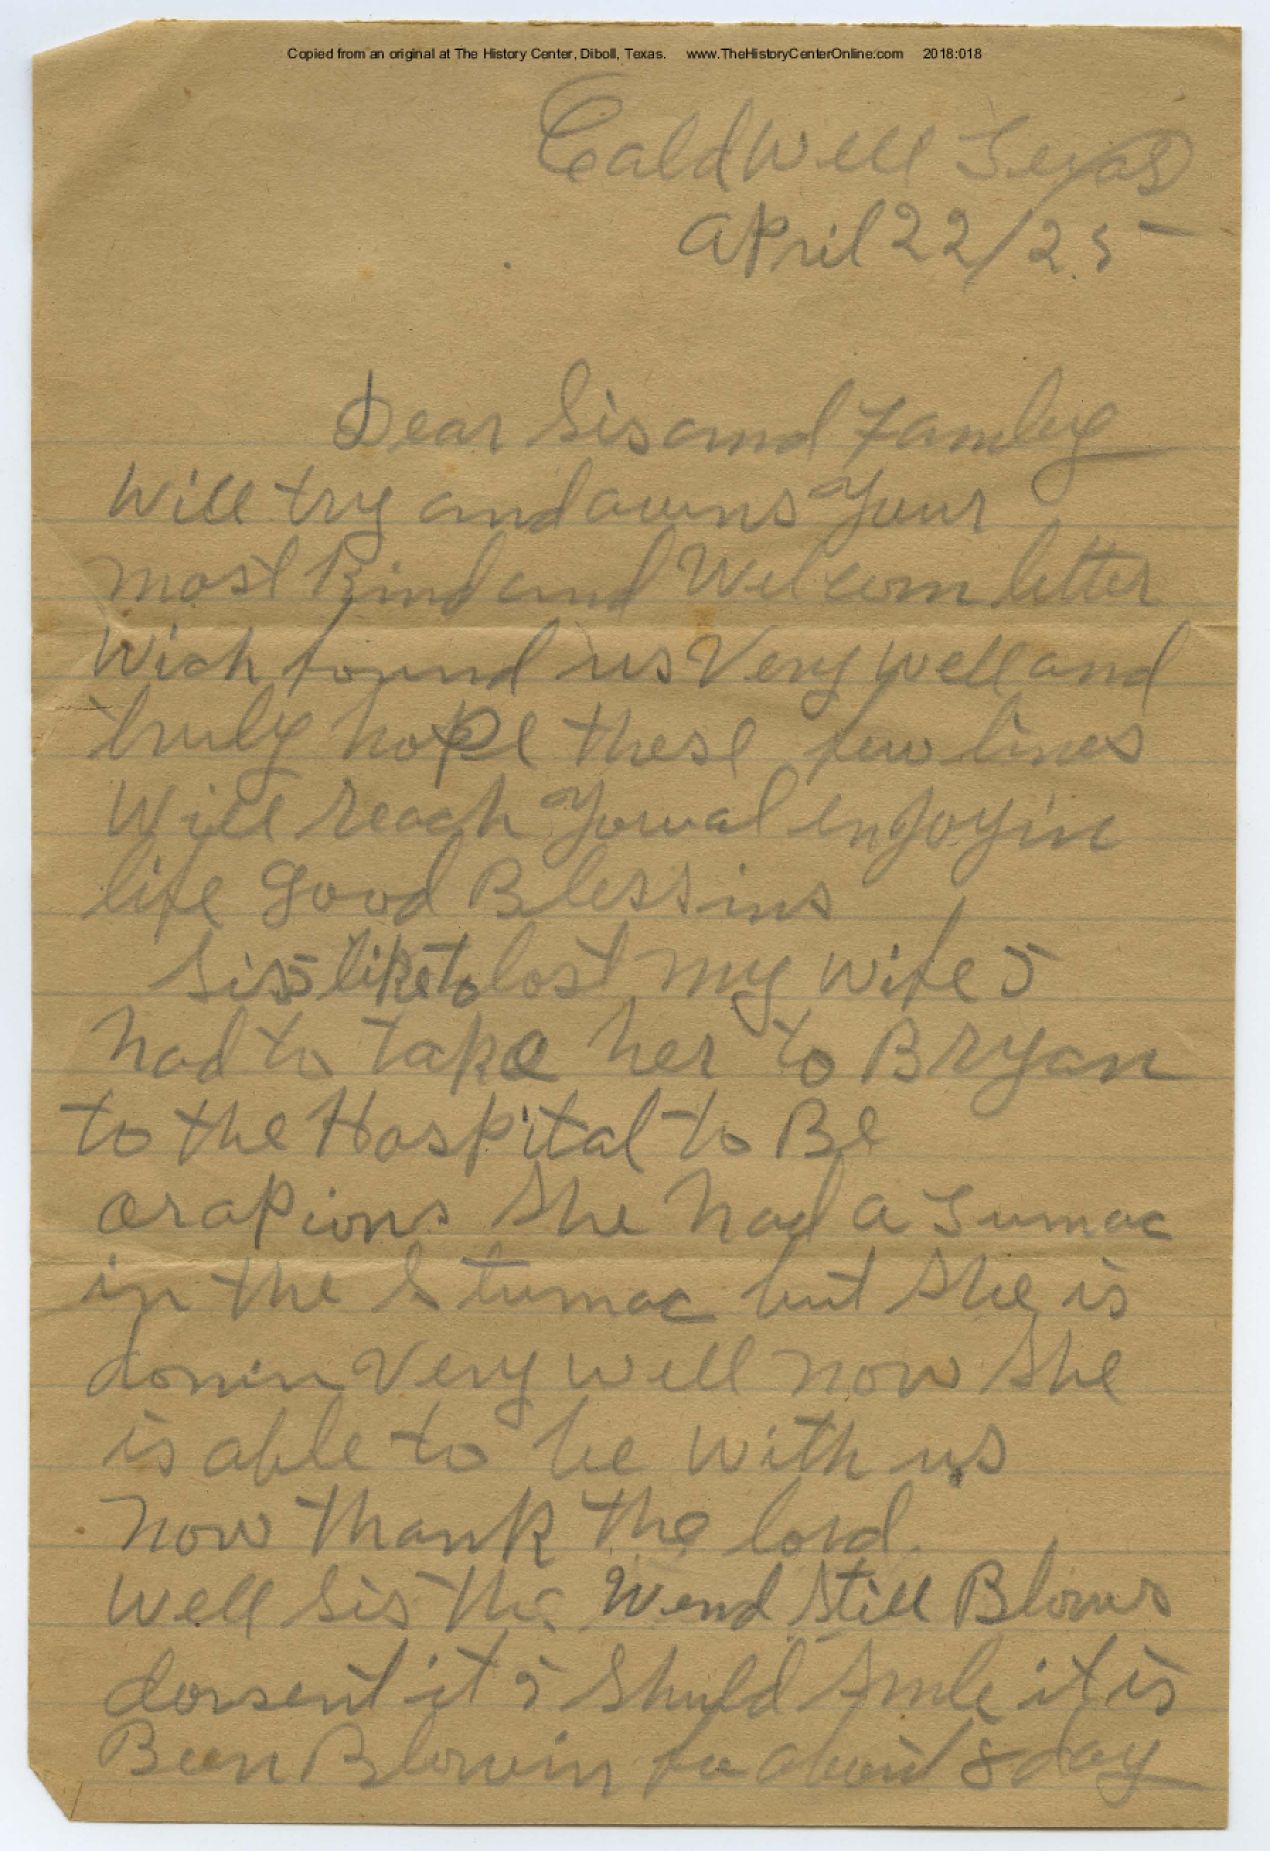 Copied from an original at The History Center, Diboll, Texas. www.TheHistoryCenterOnline.com 2018:018
CaldWell Texas
April 22/25
Dear Sis and Famley
Will try and awns your
most Kind and Welcom letter
Wich found us Very well and
truly hope these few lines
Will reach You al enjoyin
life good Blessins
Sis I like to lost my wife I
had to take her to Bryan
to the Hospital to Be
orapions She had a Tumac
in the Stumac but She is
donin Very well now She
is able to be with us
now thank the lord.
Well Sis the Wend Still Blows
dorsent it I Shuld Smile it is
Been Blowin for about 8 day